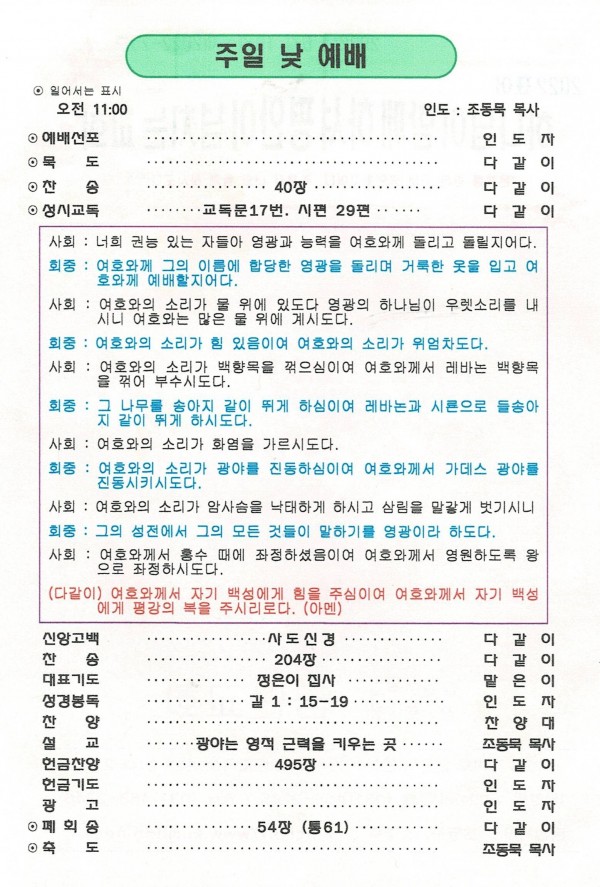 주일 낮 예배
⊙ 일어서는 표시
오전 11:00 인도 : 조동묵 목사
⊙예배선포 ······························ 인 도 자
⊙묵 도 ······························ 다 같 이
⊙찬 송 ············· 40장 ············· 다 같 이
⊙성시교독 ········교독문17번. 시편 29편······ 다 같 이
사회 : 너희 권능 있는 자들아 영광과 능력을 여호와께 돌리고 돌릴지어다.
회중 : 여호와께 그의 이름에 합당한 영광을 돌리며 거룩한 옷을 입고 여
호와께 예배할지어다.
사회 : 여호와의 소리가 물 위에 있도다 영광의 하나님이 우렛소리를 내
시니 여호와는 많은 물 위에 계시도다.
회중 : 여호와의 소리가 힘 있음이여 여호와의 소리가 위엄차도다.
사회 : 여호와의 소리가 백향목을 꺾으심이여 여호와께서 레바논 백향목
을 꺾어 부수시도다.
회중 : 그 나무를 송아지 같이 뛰게 하심이여 레바논과 시룐으로 들송아
지 같이 뛰게 하시도다.
사회 : 여호와의 소리가 화염을 가르시도다.
회중 : 여호와의 소리가 광야를 진동하심이여 여호와께서 가데스 광야를
진동시키시도다.
사회 : 여호와의 소리가 암사슴을 낙태하게 하시고 삼림을 말갛게 벗기시니
회중 : 그의 성전에서 그의 모든 것들이 말하기를 영광이라 하도다.
사회 : 여호와께서 홍수 때에 좌정하셨음이여 여호와께서 영원하도록 왕
으로 좌정하시도다.
(다같이) 여호와께서 자기 백성에게 힘을 주심이여 여호와께서 자기 백성
에게 평강의 복을 주시리로다. (아멘)
신앙고백 ·············사도신경············· 다 같 이
찬 송 ············· 204장 ············· 다 같 이
대표기도 ············ 정은이 집사 ············ 맡 은 이
성경봉독 ············ 갈 1 : 15-19 ············ 인 도 자
찬 양 ······························ 찬 양 대
설 교 ·······광야는 영적 근력을 키우는 곳······ 조동묵 목사
헌금찬양 ············· 495장 ············· 다 같 이
헌금기도 ······························ 인 도 자
광 고 ······························ 인 도 자
⊙폐 회 송 ············ 54장 (통61) ············ 다 같 이
⊙축 도 ······························ 조동묵 목사